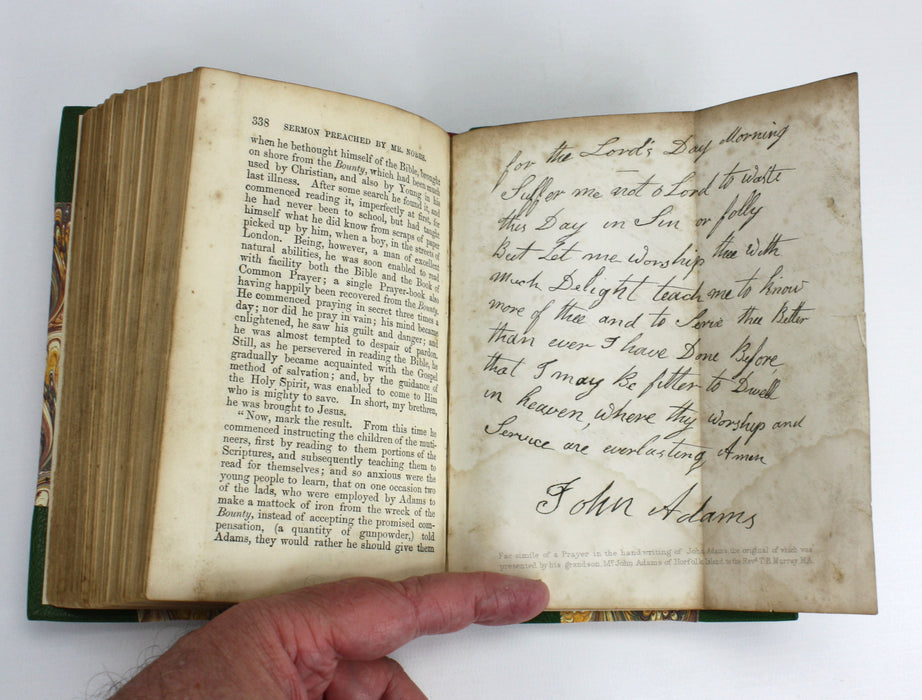 338 SERMON PREACHED BY MR. NOBBS.
when he bethought himself of the Bible, brought
on shore from the Bounty, which had been much
used by Christian, and also by Young in his
last illness. After some search he found it, and
commenced reading it, imperfectly at first, for
he had never been to school, but had taught
himself what he did know from scraps of paper
picked up by him, when a boy, in the streets of
London. Being, however, a man of excellent
natural abilities, he was soon enabled to read
with facility both the Bible and the Book of
Common Prayer; a single Prayer-book also
having happily been recovered from the Bounty.
He commenced praying in secret three times a
day; nor did he pray in vain; his mind became
enlightened, he saw his guilt and danger; and
he was almost tempted to despair of pardon.
Still, as he persevered in reading the Bible, he
gradually became acquainted with the Gospel
method of salvation; and, by the guidance of
the Holy Spirit, was enabled to come to Him
who is mighty to save. In short, my brethren,
he was brought to Jesus.
"Now, mark the result. From this time he
commenced instructing the children of the muti-
neers, first by reading to them portions of the
Scriptures, and subsequently teaching them to
read for themselves; and so anxious were the
young people to learn, that on one occasion two
of the lads, who were employed by Adams to
make a mattock of iron from the wreck of the
Bounty, instead of accepting the promised com-
pensation, (a quantity of gunpowder,) told
Adams, they would rather he should give them
for the Lord's Day Morning
Suffer me not o Lord to waste
this Day in Sin or folly
But Let me worship thee with
much Delight teach me to know
more of thee and to Serve thee Better
than ever I have Done Before,
that I may Be fitter to Dwell
in heaven, where thy worship and
Service are everlasting Amen
John Adams
Fac simile of a Prayer in the handwriting of John Adams, the original of which was
presented by his grandson, Mr. John Adams of Norfolk Island to the Revd. T.B. Murray, M.A.